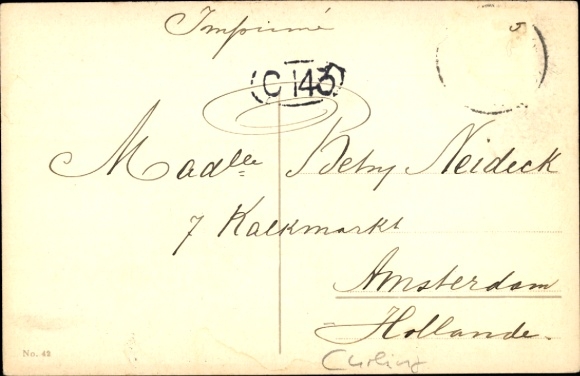 Imprimé
5
C 143
Madlle Betsy Neideck
7 Kalkmarkt
Amsterdam
Hollande.
No. 42